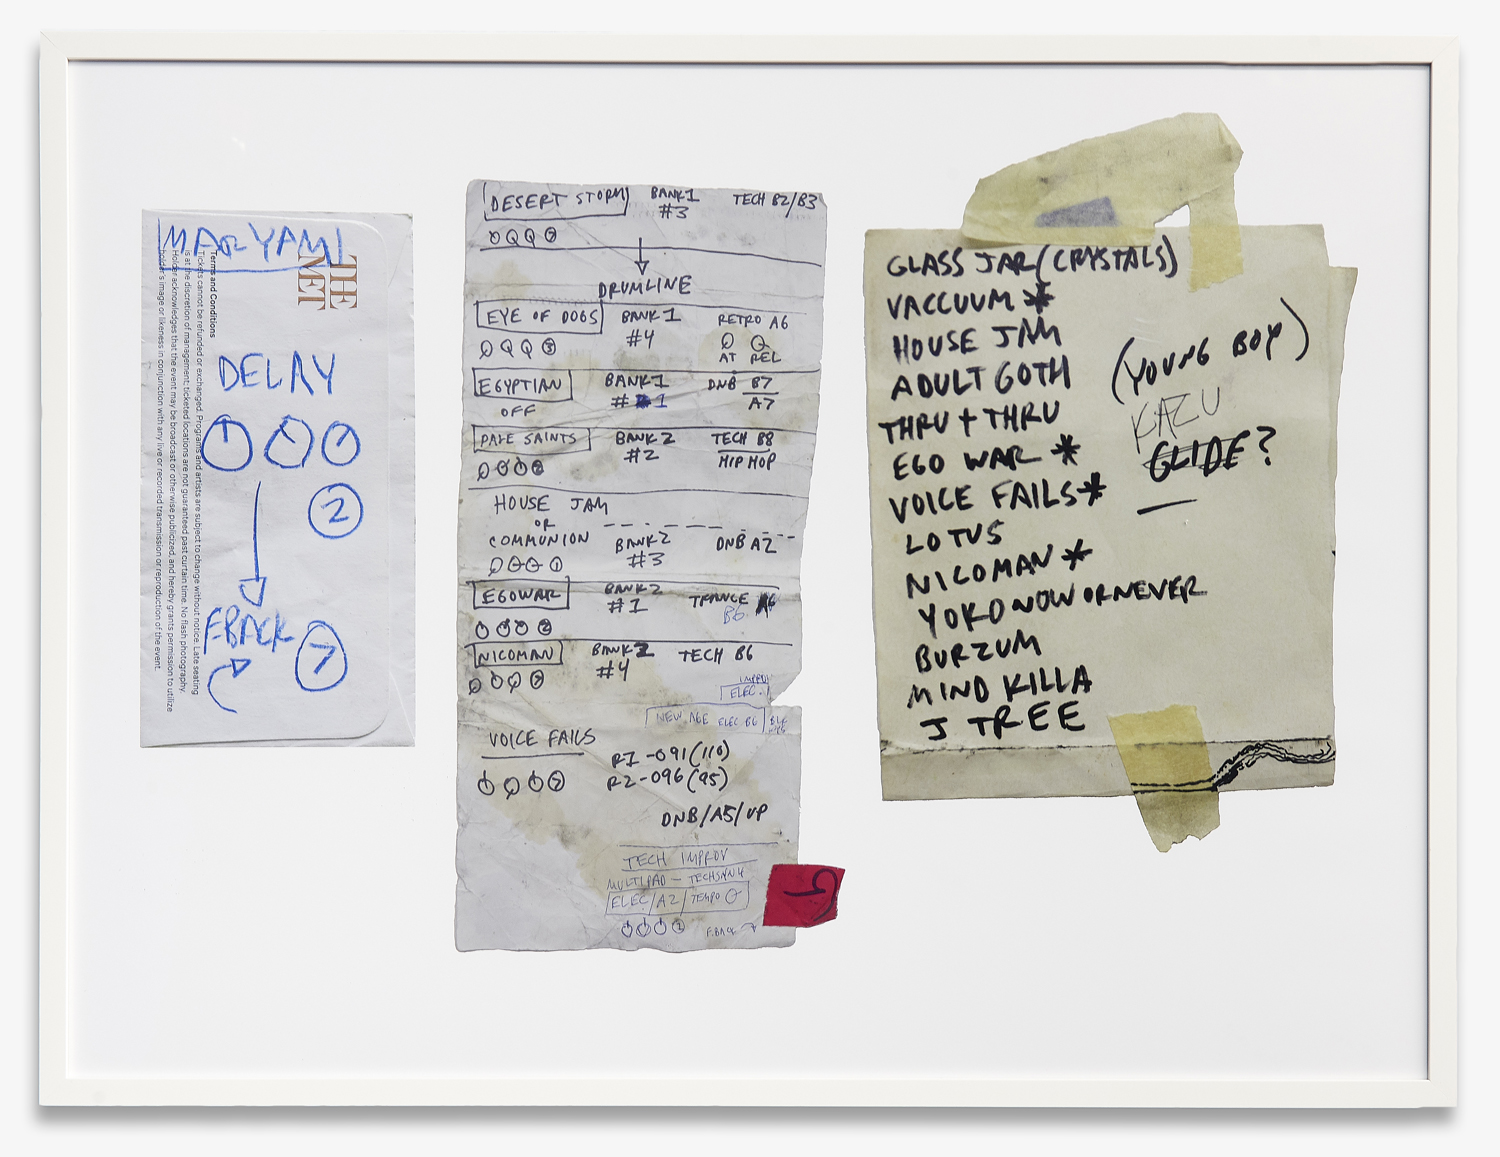 MARYAM
THE
MET
Terms and Conditions
Tickets cannot be refunded or exchanged. Programs and artists are subject to change without notice. Late seating
is at the discretion of management; ticketed locations are not guaranteed past curtain time. No flash photography.
Holder acknowledges that the event may be broadcast or otherwise publicized, and hereby grants permission to utilize
holder's image or likeness in conjunction with any live or recorded transmission or reproduction of the event.
DELAY
2
FBACK
7
DESERT STORM BANK1 TECH B2/B3
#3
DRUMLINE
EYE OF DOGS BANK1 RETRO A6
#4
AT REL
EGYPTIAN BANK1 DNB B7
OFF #1 A7
PALE SAINTS BANK2 TECH B8
#2 HIP HOP
HOUSE JAM
OR
COMMUNION BANK2 DNB A2
#3
EGOWAR BANK2 TRANCE
#1 B6
NICOMAN BANK2 TECH B6
#4
IMPROV
ELEC.
NEW AGE ELEC B6
VOICE FAILS
R1-091(110)
R2-096(95)
DNB/A5/UP
TECH IMPROV
MULTIPAD -
ELEC/A2/TEMPO
F.BACK
9
GLASS JAR (CRYSTALS)
VACCUUM *
HOUSE JAM
ADULT GOTH
THRU + THRU
EGO WAR *
VOICE FAILS *
LOTUS
NICOMAN *
YOKO NOW OR NEVER
BURZUM
MIND KILLA
J TREE
(YOUNG BOY)
KAZU
GLIDE?